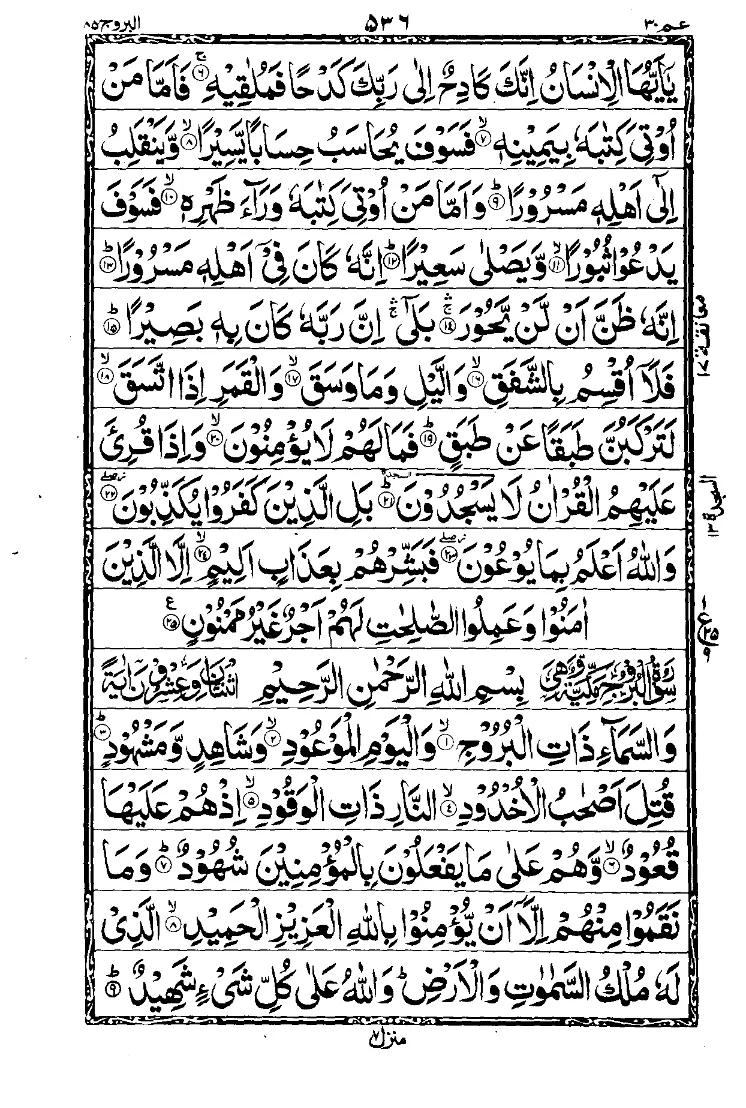 عم ٣٠ ٥٣٦ البروج ٨٥
يٰۤاَيُّهَا الْاِنْسَانُ اِنَّكَ كَادِحٌ اِلٰى رَبِّكَ كَدْحًا فَمُلٰقِيْهِ ۚ‏﴿۶﴾ فَاَمَّا مَنْ
اُوْتِىَ كِتٰبَهٗ بِيَمِيْنِهٖ ۙ‏﴿۷﴾ فَسَوْفَ يُحَاسَبُ حِسَابًا يَّسِيْرًا ۙ‏﴿۸﴾ وَّيَنْقَلِبُ
اِلٰٓى اَهْلِهٖ مَسْرُوْرًا ؕ‏﴿۹﴾ وَاَمَّا مَنْ اُوْتِىَ كِتٰبَهٗ وَرَآءَ ظَهْرِهٖ ۙ‏﴿۱۰﴾ فَسَوْفَ
يَدْعُوْا ثُبُوْرًا ۙ‏﴿۱۱﴾ وَّيَصْلٰى سَعِيْرًا ؕ‏﴿۱۲﴾ اِنَّهٗ كَانَ فِىْۤ اَهْلِهٖ مَسْرُوْرًا ؕ‏﴿۱۳﴾
اِنَّهٗ ظَنَّ اَنْ لَّنْ يَّحُوْرَ ۛۚ‏﴿۱۴﴾ بَلٰٓى ۛۚ اِنَّ رَبَّهٗ كَانَ بِهٖ بَصِيْرًا ؕ‏﴿۱۵﴾
معانقة ١٧
فَلَاۤ اُقْسِمُ بِالشَّفَقِ ۙ‏﴿۱۶﴾ وَالَّيْلِ وَمَا وَسَقَ ۙ‏﴿۱۷﴾ وَالْقَمَرِ اِذَا اتَّسَقَ ۙ‏﴿۱۸﴾
لَتَرْكَبُنَّ طَبَقًا عَنْ طَبَقٍ ؕ‏﴿۱۹﴾ فَمَا لَهُمْ لَا يُؤْمِنُوْنَ ۙ‏﴿۲۰﴾ وَاِذَا قُرِئَ
عَلَيْهِمُ الْقُرْاٰنُ لَا يَسْجُدُوْنَ ؕ‏﴿۲۱﴾ بَلِ الَّذِيْنَ كَفَرُوْا يُكَذِّبُوْنَ ‏﴿۲۲﴾
السجدة ١٣
وَاللّٰهُ اَعْلَمُ بِمَا يُوْعُوْنَ ‏﴿۲۳﴾ فَبَشِّرْهُمْ بِعَذَابٍ اَلِيْمٍ ۙ‏﴿۲۴﴾ اِلَّا الَّذِيْنَ
اٰمَنُوْا وَعَمِلُوا الصّٰلِحٰتِ لَهُمْ اَجْرٌ غَيْرُ مَمْنُوْنٍ ‏﴿۲۵﴾
سورة البروج مكية وهى بِسْمِ اللّٰهِ الرَّحْمٰنِ الرَّحِيْمِ اثنتان وعشرون اية
وَالسَّمَآءِ ذَاتِ الْبُرُوْجِ ۙ‏﴿۱﴾ وَالْيَوْمِ الْمَوْعُوْدِ ۙ‏﴿۲﴾ وَشَاهِدٍ وَّمَشْهُوْدٍ ؕ‏﴿۳﴾
قُتِلَ اَصْحٰبُ الْاُخْدُوْدِ ۙ‏﴿۴﴾ النَّارِ ذَاتِ الْوَقُوْدِ ۙ‏﴿۵﴾ اِذْ هُمْ عَلَيْهَا
قُعُوْدٌ ۙ‏﴿۶﴾ وَّهُمْ عَلٰى مَا يَفْعَلُوْنَ بِالْمُؤْمِنِيْنَ شُهُوْدٌ ؕ‏﴿۷﴾ وَمَا
نَقَمُوْا مِنْهُمْ اِلَّاۤ اَنْ يُّؤْمِنُوْا بِاللّٰهِ الْعَزِيْزِ الْحَمِيْدِ ۙ‏﴿۸﴾ الَّذِىْ
لَهٗ مُلْكُ السَّمٰوٰتِ وَالْاَرْضِ ؕ وَاللّٰهُ عَلٰى كُلِّ شَىْءٍ شَهِيْدٌ ؕ‏﴿۹﴾
منزل ٧